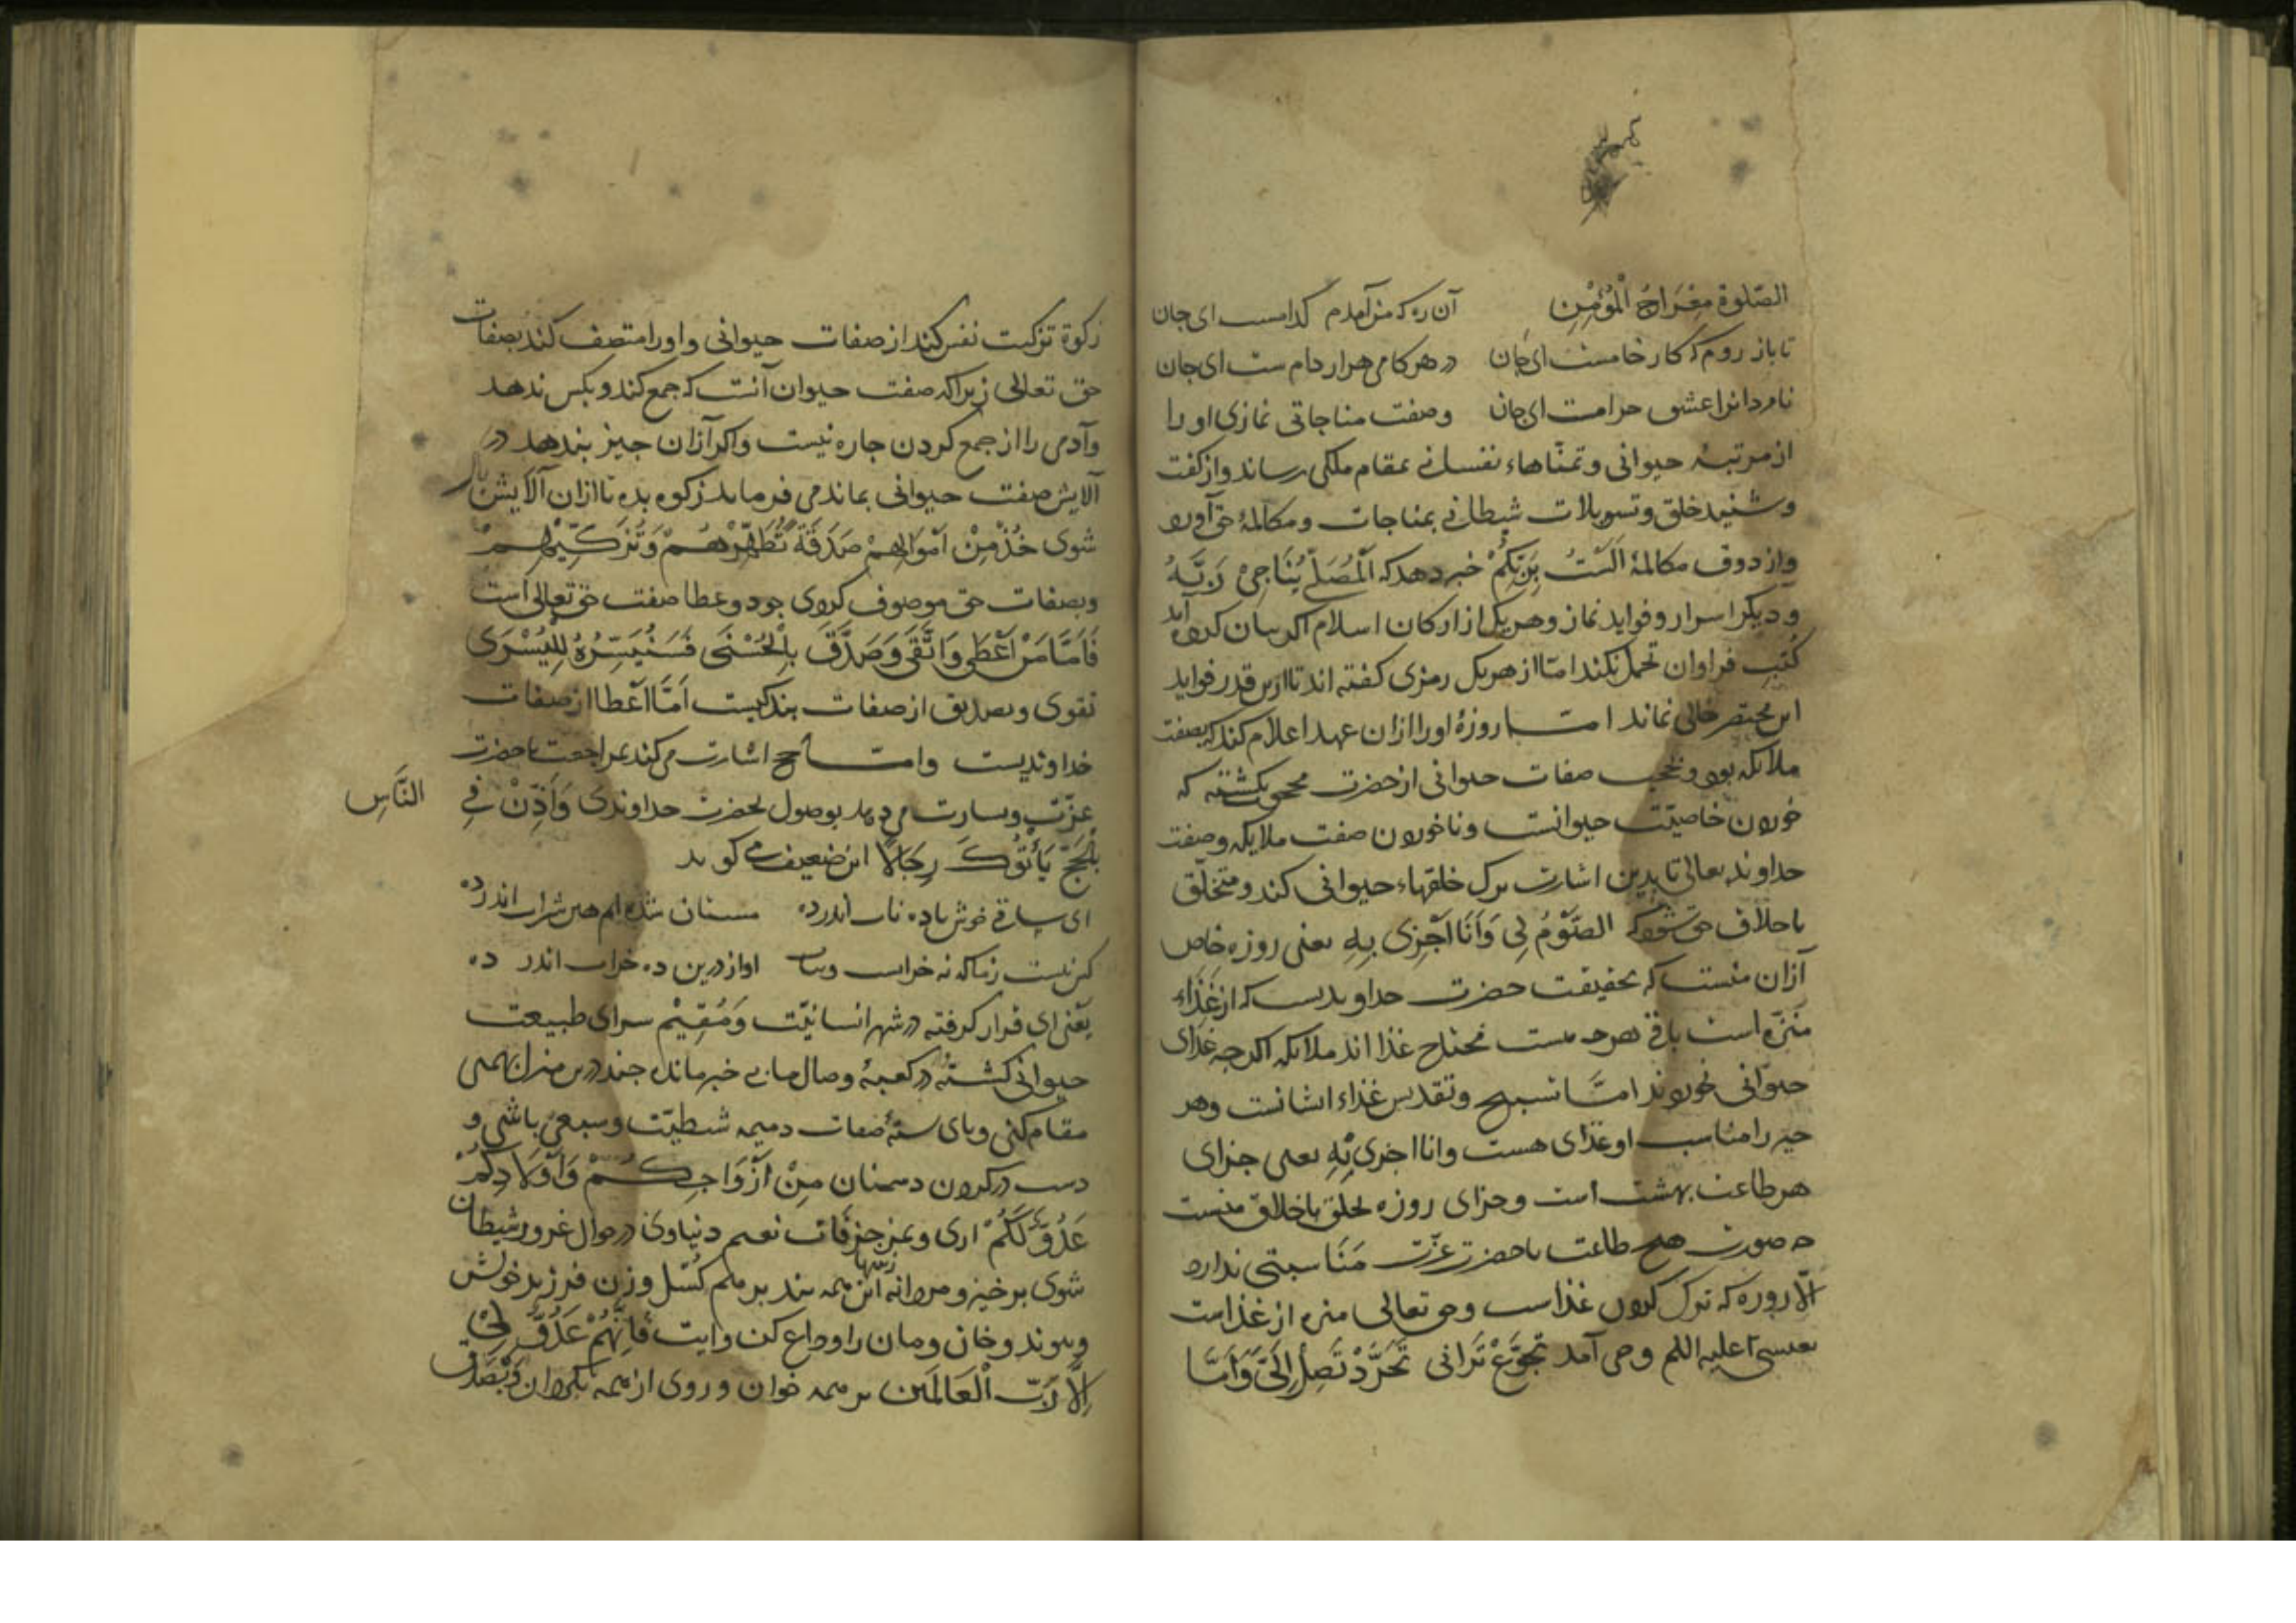 الصّلوة معراجُ الْمُؤْمِنِ آن ره که من آمدم کدامست ای جان
تا باز روم که کار خامست ای جان در هر کامی هزار دام ست ای جان
نامردانرا عشق حرامت ای جان وصفت مناجاتی نمازی او را
از مرتبهٔ حیوانی و تمنّاهاء نفسانی بمقام ملکی رساند و از کفت
و شنید خلق و تسویلات شیطانی بمناجات و مکالمهٔ حق آورد
و از ذوق مکالمهٔ اَلَسْتُ بِرَبِّكُمْ خبر دهد که اَلْمُصَلّي يُنَاجِي رَبَّهُ
و دیکر اسرار و فواید نماز و هر یک از ارکان اسلام اکر بیان کرده آید
کُتب فراوان تحمل نکند امّا از هر یک رمزی کفته اند تا ازین قدر فواید
این مختصر خالی نماند امّا روزهٔ او را ازان عهد اعلام کند که بصفت
ملائکه بود و بحجب صفات حیوانی از حضرت محجوب کشته که
خوردن خاصیّت حیوانست و ناخوردن صفت ملایکه و صفت
خداوند تعالی تا بدین اشارت ترک خلقهاء حیوانی کند و متخلّق
باخلاق حق شود که الصَّوْمُ لِي وَاَنَا اَجْزِى بِهِ یعنی روزه خاص
ازان منست که بحقیقت حضرت خداوندیست که از غذاء
منزّه است باقی هر چه هست محتاج غذا اند ملائکه اکر چه غذای
حیوانی نخورند امّا تسبیح و تقدیس غذاء ایشانست و هر
چیز را مناسب او غذای هست وانا اجزی بِهِ یعنی جزای
هر طاعت بهشت است و جزای روزه تخلق باخلاق منست
چه صورت هیچ طاعت با حضرت عزّت مناسبتی ندارد
الّا روزه که ترک کردن غذاست و حق تعالی منزه از غذاست
بعیسی علیه السلم وحی آمد تَجَوَّعْ تَرَانی تَجَرَّدْ تَصِلْ اِلَيَّ وَاَمَّا
زکوة تزکیت نفس کند از صفات حیوانی و او را متصف کند بصفات
حق تعالی زیرا که صفت حیوان آنست که جمع کند و بکس ندهد
و آدمی را از جمع کردن چاره نیست و اکر ازان چیز بندهد در
آلایش صفت حیوانی بماند می فرماید زکوه بده تا ازان آلایش پاک
شوی خُذْ مِنْ اَمْوَالِهِمْ صَدَقَةً تُطَهِّرُهُمْ وَتُزَكِّيهِمْ
و بصفات حق موصوف کردی جود و عطا صفت حق تعالی است
فَاَمَّا مَنْ اَعْطَى وَاتَّقَى وَصَدَّقَ بِالْحُسْنَى فَسَنُيَسِّرُهُ لِلْيُسْرَى
تقوی و تصدیق از صفات بندکیست اَمَّا اَعْطا از صفات
خداوندیست وامّا حج اشارت می کند بمراجعت با حضرت
عزّت و بشارت می دهد بوصول بحضرت خداوندی وَاَذِّنْ فِي النَّاسِ
بِالْحَجِّ يَأْتُوكَ رِجَالًا این ضعیف می کوید
ای ساقی خوش باده ناب اندر ده مستان شده ایم هین شراب اندر ده
کس نیست زما که نه خرابست و یباب اواز درین ده خراب اندر ده
یعنی ای قرار کرفته در شهر انسانیّت وَمُقِيْم سرای طبیعت
حیوانی کشته در کعبهٔ وصال ما بی خبر مانده چند درین منزل بهیمی
مقام کنی و پای بستهٔ صفات ذمیمه شیطیّت و سبعی باشی و
دست در کردن دشمنان مِنْ اَزْوَاجِكُمْ وَاَوْلَادِكُمْ
عَدُوًّا لَكُمْ اری و بمزخرفات نعیم دنیاوی در جوال غرور شیطان
شوی برخیز و مردانه این همه بندها بر هم کسل و زن و فرزند خویش
و پیوند و خان و مان را وداع کن و ایت فَاِنَّهُمْ عَدُوٌّ لِي
اِلَّا رَبَّ الْعَالَمَين بر همه خوان و روی از همه بکردان و بصدق